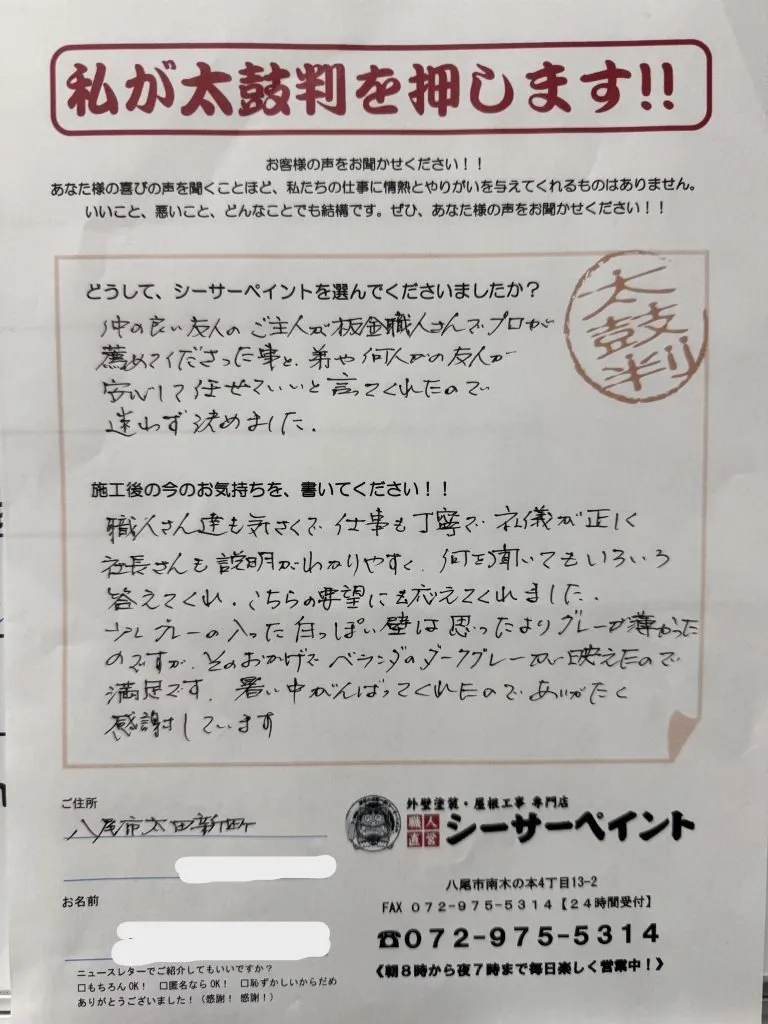 私が太鼓判を押します!!
お客様の声をお聞かせください！！
あなた様の喜びの声を聞くことほど、私たちの仕事に情熱とやりがいを与えてくれるものはありません。
いいこと、悪いこと、どんなことでも結構です。ぜひ、あなた様の声をお聞かせください！！
太鼓判
どうして、シーサーペイントを選んでくださいましたか？
仲の良い友人のご主人が板金職人さんでプロが
薦めてくださった事と、弟や何人かの友人が
安心して任せていいと言ってくれたので
迷わず決めました.
施工後の今のお気持ちを、書いてください！！
職人さん達も気さくで仕事も丁寧で礼儀が正しく
社長さんも説明がわかりやすく、何を聞いてもいろいろ
答えてくれ、こちらの要望にも応えてくれました.
少しグレーの入った白っぽい壁は思ったよりグレーが薄かった
のですが、そのおかげでベランダのダークグレーがい映えたので
満足です. 暑い中がんばってくれたのでありがたく
感謝しています
ご住所
八尾市太田新町
お名前
ニュースレターでご紹介してもいいですか？
□もちろんOK！ □匿名ならOK！ □恥ずかしいからだめ
ありがとうございました！（感謝！感謝！）
外壁塗装・屋根工事 専門店
職人直営
シーサーペイント
八尾市南木の本4丁目13-2
FAX 072-975-5314【24時間受付】
☎072-975-5314
《朝8時から夜7時まで毎日楽しく営業中！》